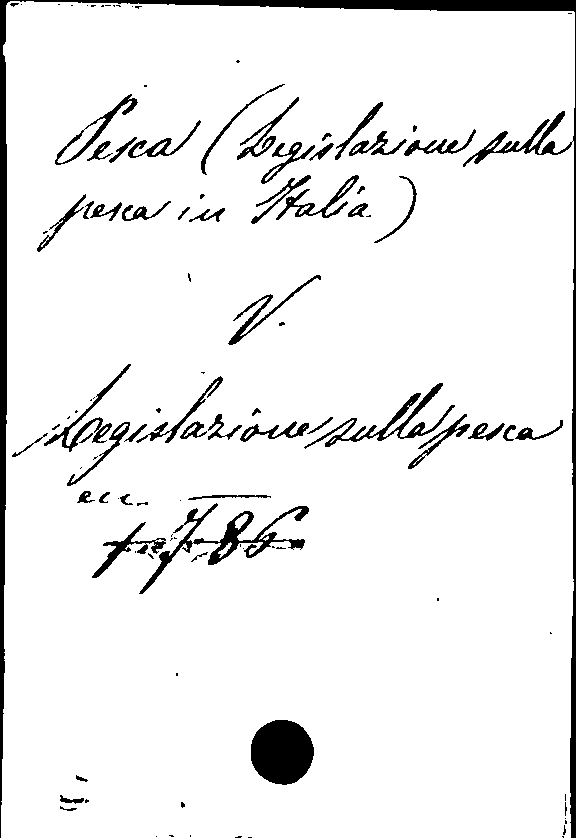 Pesca (Legislazione sulla
pesca in Italia)
V.
Legislazione sulla pesca
ecc.